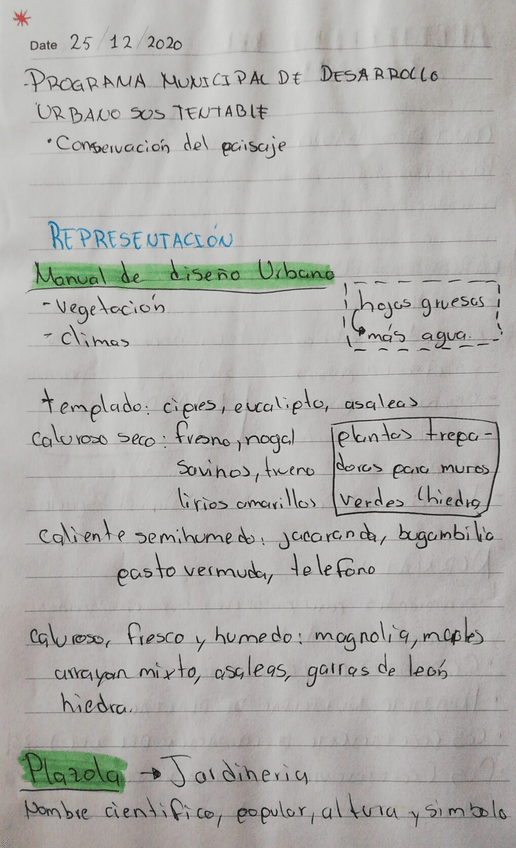 Date 25/12/2020
-PROGRAMA MUNICIPAL DE DESARROLLO
URBANO SOSTENTABLE
•Conservación del paisaje
REPRESENTACIÓN
Manual de diseño Urbano
-vegetación
-climas
hojas gruesas
↳más agua.
templado: cipres, eucalipto, asaleas
caluroso seco: fresno, nogal
savinos, trueno
lirios amarillos
plantas trepa-
doras para muros
verdes (hiedra)
caliente semihumedo: jacaranda, bugambilia
pasto vermuda, telefono
caluroso, fresco y humedo: magnolia, maples
arrayan mixto, asaleas, garras de león
hiedra.
Plazola → Jardineria
Nombre cientifico, popular, altura y simbolo